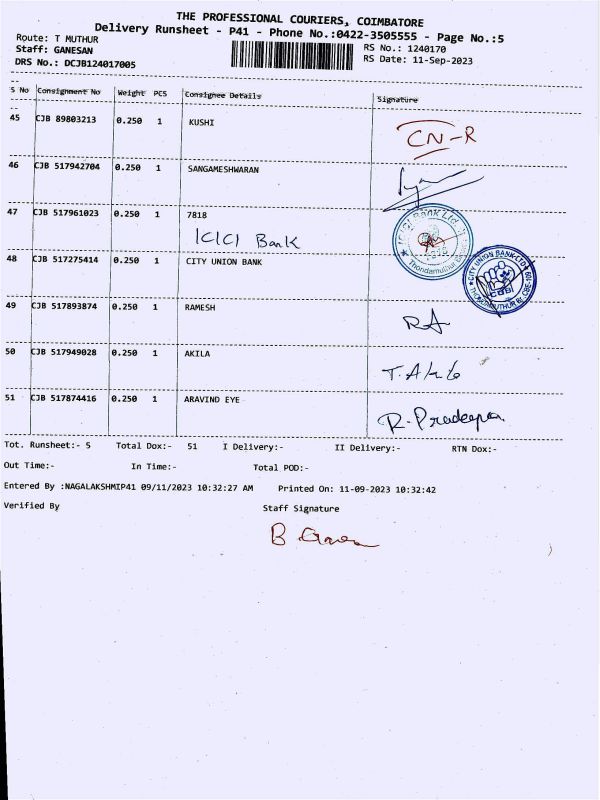 THE PROFESSIONAL COURIERS, COIMBATORE
Delivery Runsheet - P41 - Phone No.:0422-3505555 - Page No.:5
Route: T MUTHUR
RS No.: 1240170
Staff: GANESAN
RS Date: 11-Sep-2023
DRS No.: DCJB124017005
S No Consignment No Weight PCS Consignee Details Signature
45 CJB 89803213 0.250 1 KUSHI
CN-R
46 CJB 517942704 0.250 1 SANGAMESHWARAN
47 CJB 517961023 0.250 1 7818
ICICI Bank
ICICI Bank Ltd.
Thondamuthur
48 CJB 517275414 0.250 1 CITY UNION BANK
CITY UNION BANK LTD
49 CJB 517893874 0.250 1 RAMESH
RA
50 CJB 517949028 0.250 1 AKILA
T. Akila
51 CJB 517874416 0.250 1 ARAVIND EYE
R. Pradeepa
Tot. Runsheet:- 5 Total Dox:- 51 I Delivery:- II Delivery:- RTN Dox:-
Out Time:- In Time:- Total POD:-
Entered By :NAGALAKSHMIP41 09/11/2023 10:32:27 AM Printed On: 11-09-2023 10:32:42
Verified By Staff Signature